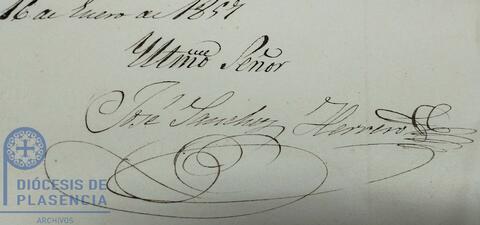 16 de Enero de 1857
Yltmo Señor
José Sanchez Herrero
DIÓCESIS DE
PLASENCIA
ARCHIVOS